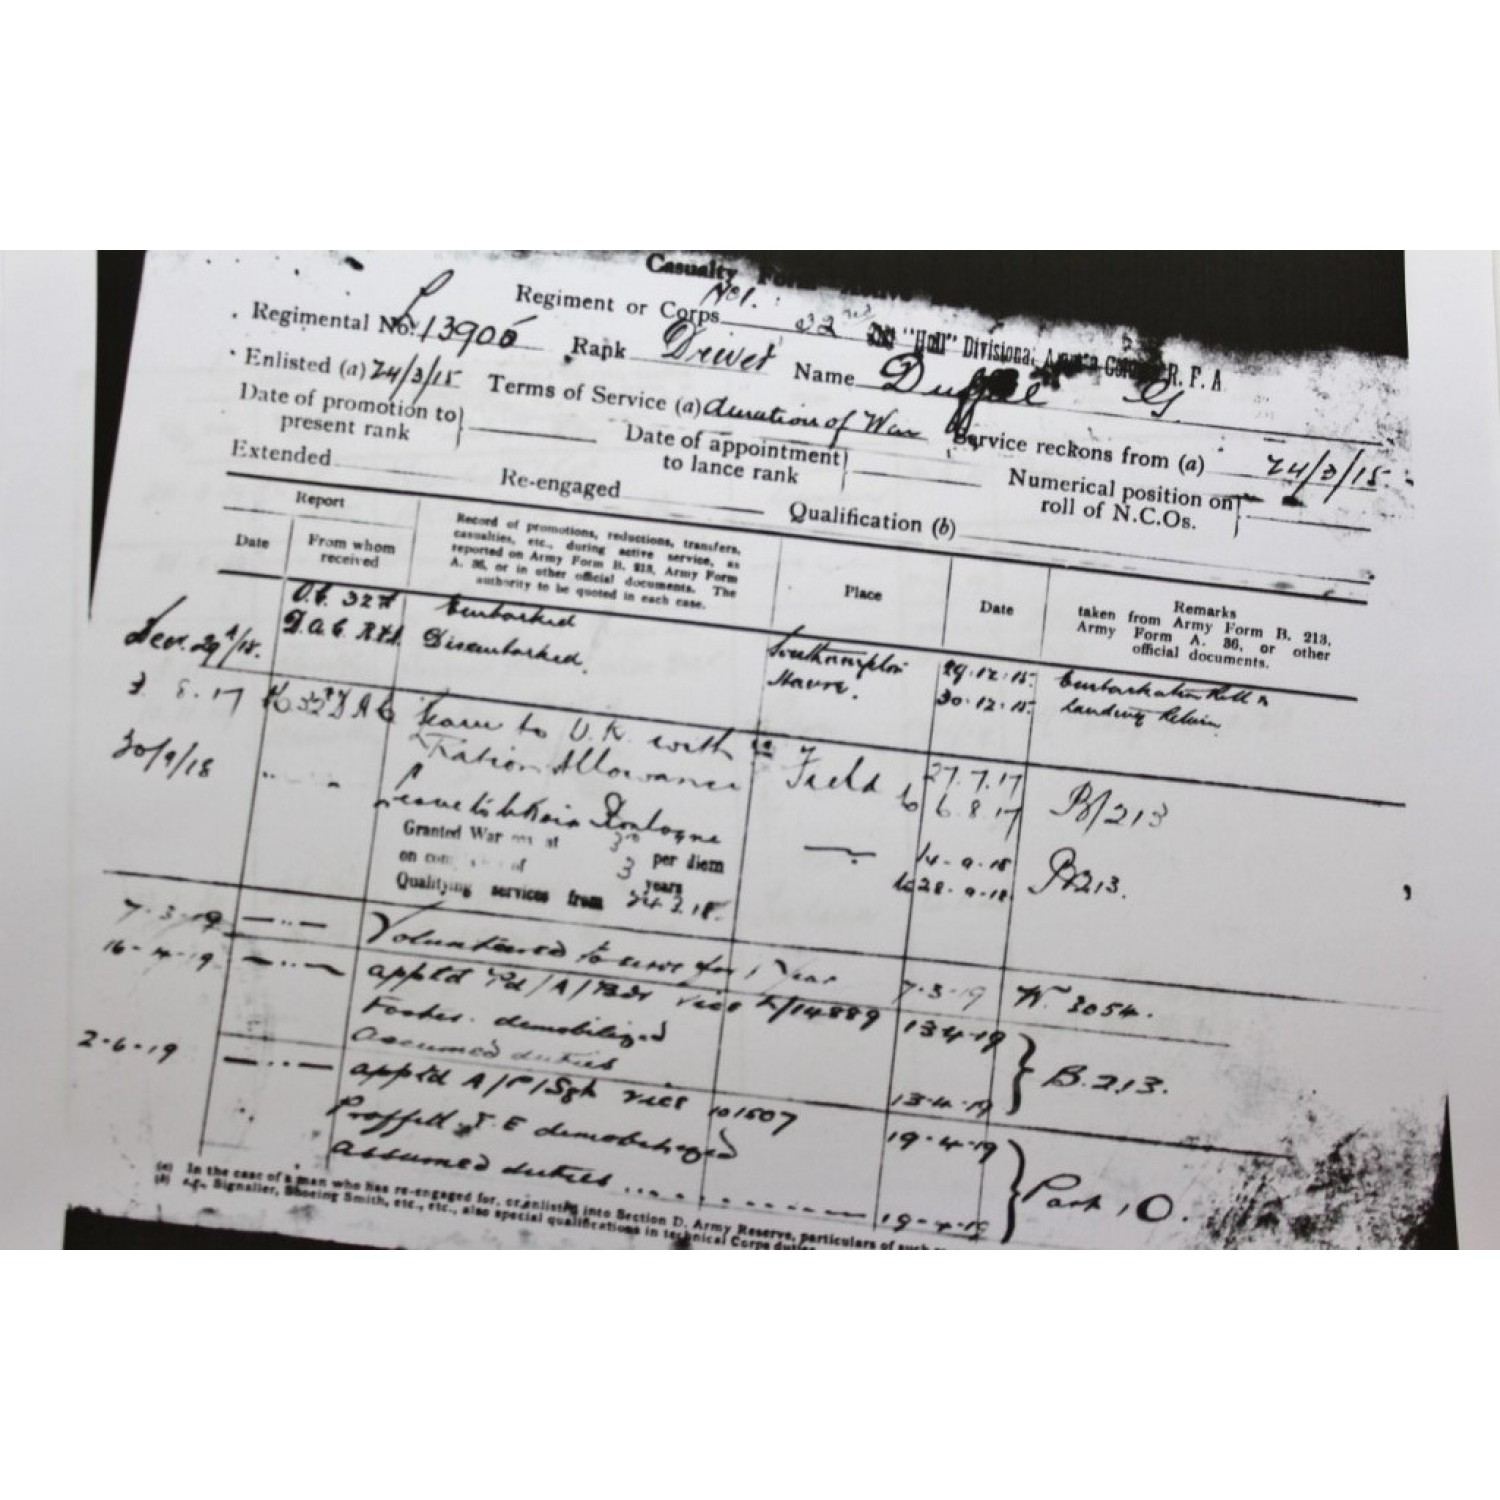 Casualty Form
Regiment or Corps No1. 32nd "Hull" Divisional R. F. A
Regimental No. L 13905 Rank Driver Name G
Enlisted (a) 24/3/15 Terms of Service (a) duration of War Service reckons from (a) 24/3/15.
Date of promotion to present rank
Date of appointment to lance rank
Numerical position on roll of N.C.Os.
Extended
Re-engaged
Qualification (b)
Report
Date
From whom received
Record of promotions, reductions, transfers,
casualties, etc., during active service, as
reported on Army Form B. 213, Army Form
A. 36, or in other official documents. The
authority to be quoted in each case.
Place
Date
Remarks
taken from Army Form B. 213,
Army Form A. 36, or other
official documents.
O.C. 32nd Embarked Southampton 29.12.15. Embarkation Roll &
Decr. 29th/15. D.A.C. R.F.A. Disembarked. Havre. 30.12.15. Landing Return
3 8.17 32nd D A C Leave to U.K. with in Field 27.7.17
Ration Allowance to 6.8.17 B/213
30/9/18 " " Leave to Boulogne 14-9-18
to 28-9-18 B213.
Granted War at per diem
on of 3 years
Qualifying services from
7-3-19 —..— Volunteered to serve for 1 Year 7-3-19 W. 3054.
16-4-19 —..— appt'd Pd/A/Bdr vice L/14889 13-4-19
Foster. demobilized
assumed duties 13-4-19 B.213.
2-6-19 —..— appt'd A/P/Sgt vice 101507 19-4-19
T. E demobilized
assumed duties ........ 19-4-19 Part 10.
(a) In the case of a man who has re-engaged for, or enlisted into Section D, Army Reserve, particulars of such
(b) e.g., Signaller, Shoeing Smith, etc., etc., also special qualifications in technical Corps duties